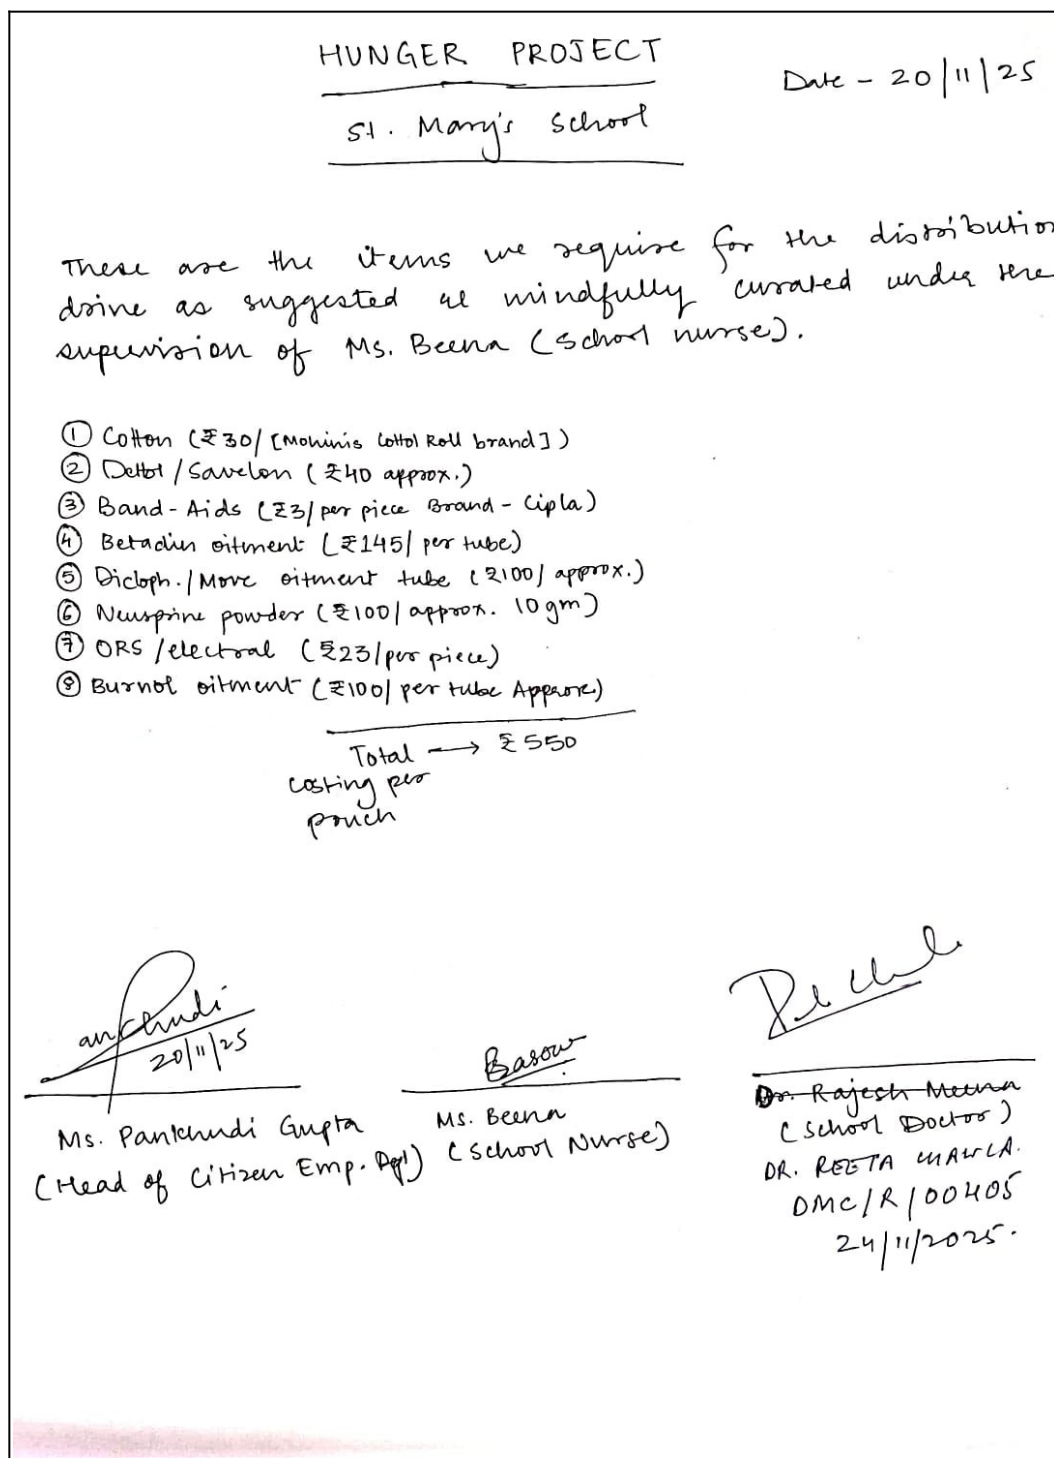 HUNGER PROJECT
Date - 20/11/25
St. Mary's School
These are the items we require for the distribution
drive as suggested & mindfully curated under the
supervision of Ms. Beena (School nurse).
① Cotton (₹30/ [Mohinis Cottol Roll brand])
② Dettol / Savelon (₹40 approx.)
③ Band-Aids (₹3/ per piece Brand - Cipla)
④ Betadin oitment (₹145/ per tube)
⑤ Dicloph. / Move oitment tube (₹100/ approx.)
⑥ Neusprine powder (₹100/ approx. 10gm)
⑦ ORS / electral (₹23/per piece)
⑧ Burnol oitment (₹100/ per tube Approx.)
Total → ₹550
costing per
pouch
20/11/25
Ms. Pankhudi Gupta
(Head of Citizen Emp.
Ms. Beena
(School Nurse)
Dr. Rajesh Meena
(School Doctor)
DR. REETA CHAWLA.
DMC/R/00405
24/11/2025.